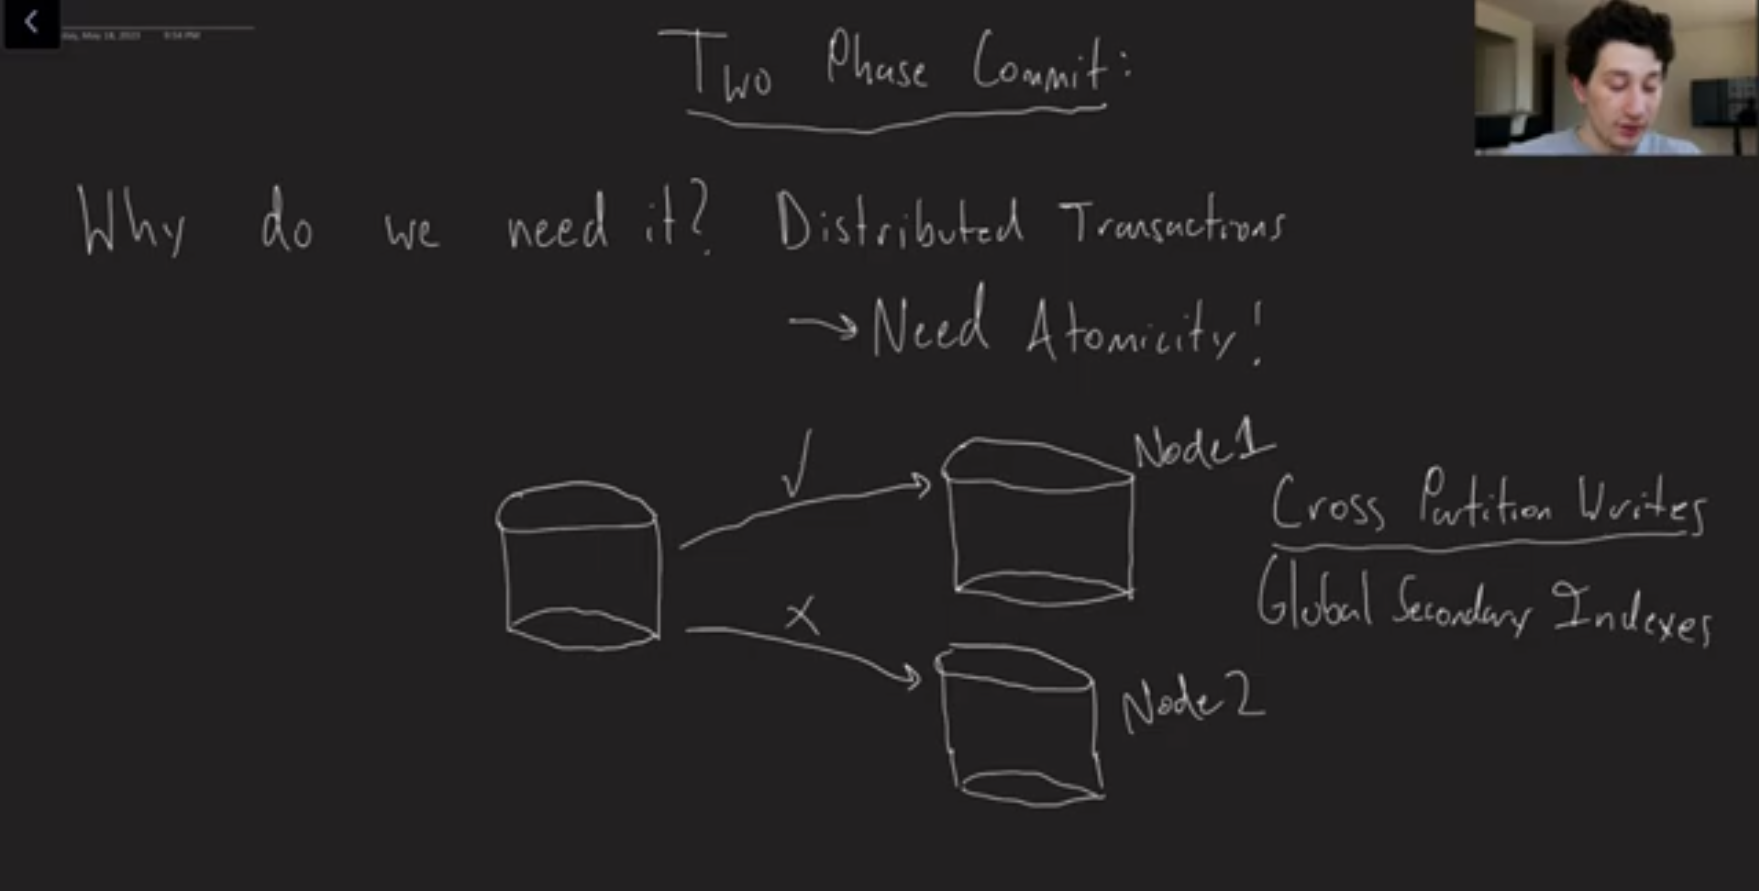 May 18, 2023 9:54 PM
Two Phase Commit:
Why do we need it? Distributed Transactions
→ Need Atomicity!
✓
Node 1
Cross Partition Writes
Global Secondary Indexes
X
Node 2